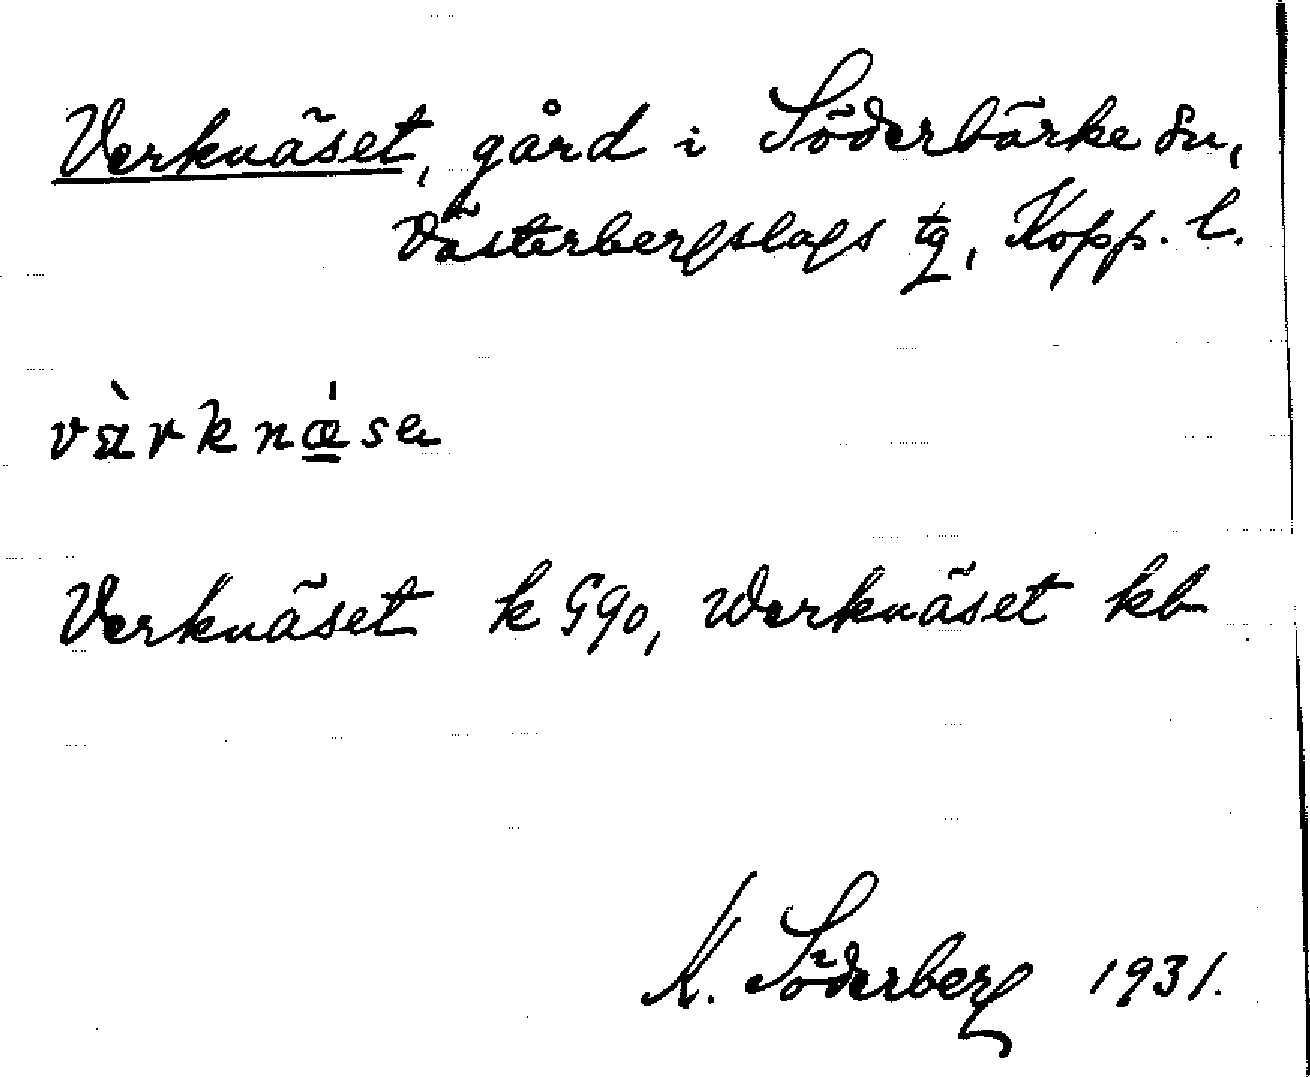 Verknäset, gård i Söderbärke sn,
Västerbergslags tg, Kopp. l.
värknæse
Verknäset k Ggo, Werknäset kb
K. Söderberg 1931.